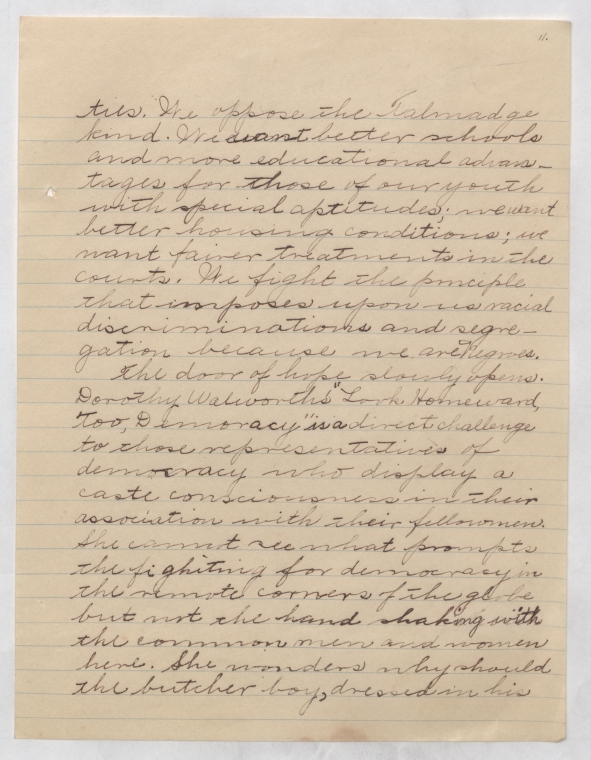 11.
ties. We oppose the Talmadge
kind. We want better schools
and more educational advan-
tages for those of our youth
with special aptitudes; we want
better housing conditions; we
want fairer treatments in the
courts. We fight the pnciple
that imposes upon us racial
discriminations and segre-
gation because we are Negroes.
The door of hope slowly opens.
Dorothy Walworth's "Look Homeward,
Too, Demoracy" is a direct challenge
to those representatives of
democracy who display a
caste consciousness in their
association with their fellowmen.
She cannot see what prompts
the fighiting for democracy in
the remote corners of the globe
but not the hand shaking with
the common men and women
here. She wonders why should
the butcher boy, dressed in his